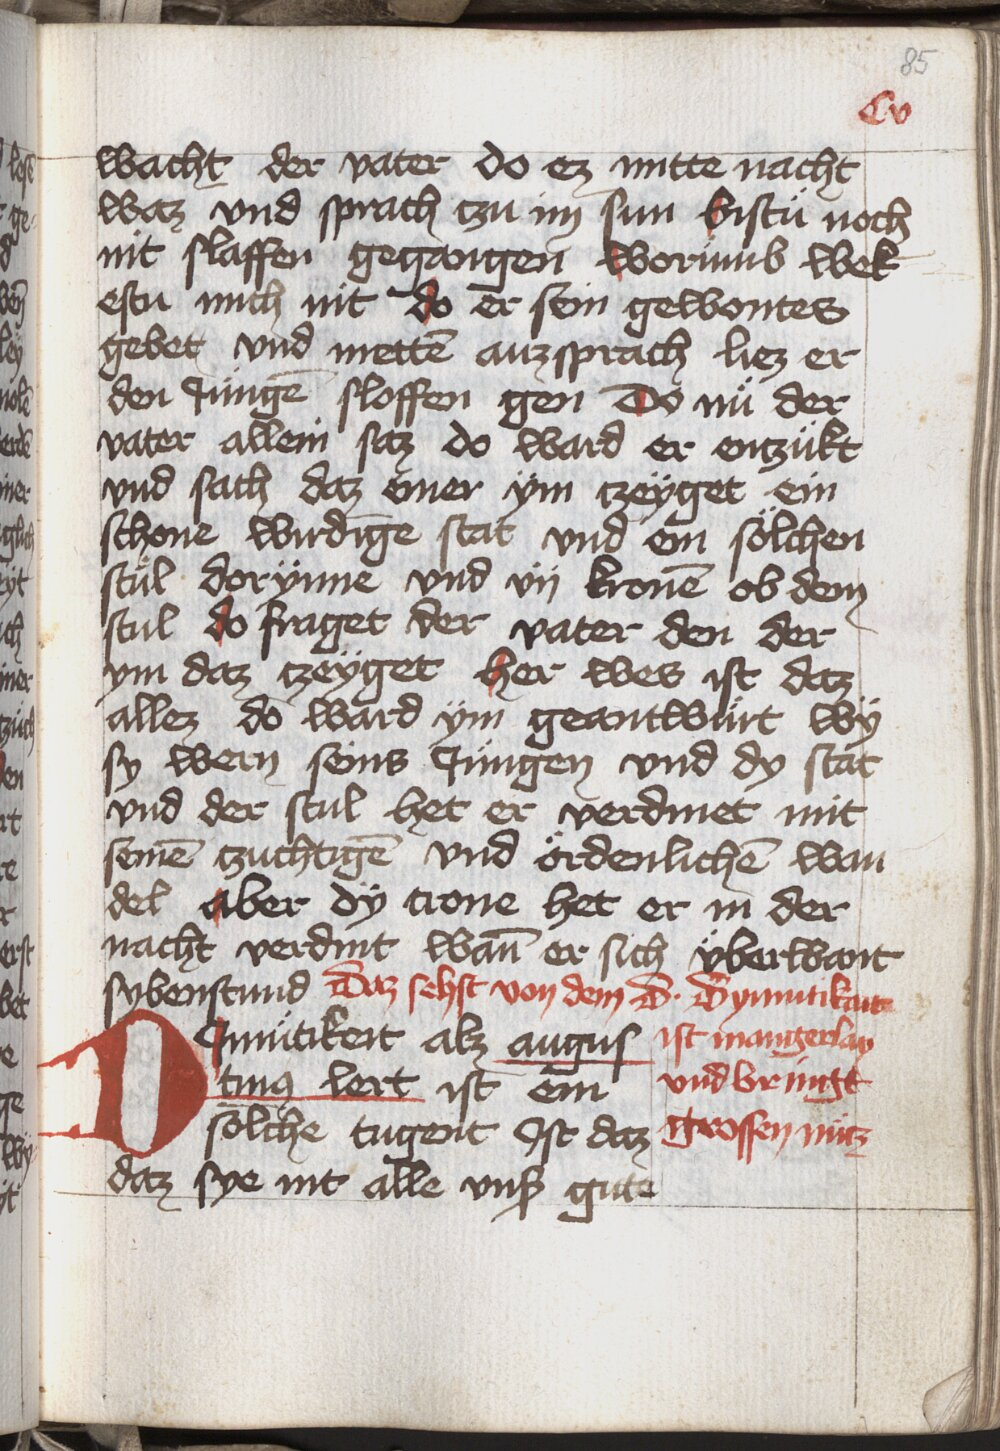 85
Cv
wacht der vater do ez mitte nacht
waz vnd sprach tzu im sun bistu noch
nit slaffen gegangen worumb wek
estu mich nit do er sein gewontes
gebet vnd mettē auzsprach liez er
den Jungē sloffen gen Do nü der
vater allein saz do ward er entzükt
vnd sach daz einer ẏm tzeẏget ein
schone wirdige stat vnd ein sölchen
stül dorẏnne vnd vij kronē ob dem
stul do fraget der vater den der
ym daz tzeẏget her wes ist daz
allez do ward ẏm geantwürt wẏ
sy wern seins Jungen vnd dy stat
vnd der stul het er verdinet mit
seinē tzuchtigē vnd ördenlichē wan
del aber dẏ crone het er in der
nacht verdint wañ er sich ẏberwant
sybenstund Daz sehst von dem D. Dymutikait
Dimütikeit alz augus ist mangerlay
tinꝯ lert ist ein vnd bringt
sölche tugent Ist daz grossen nütz
daz sye nit alle vnß gute